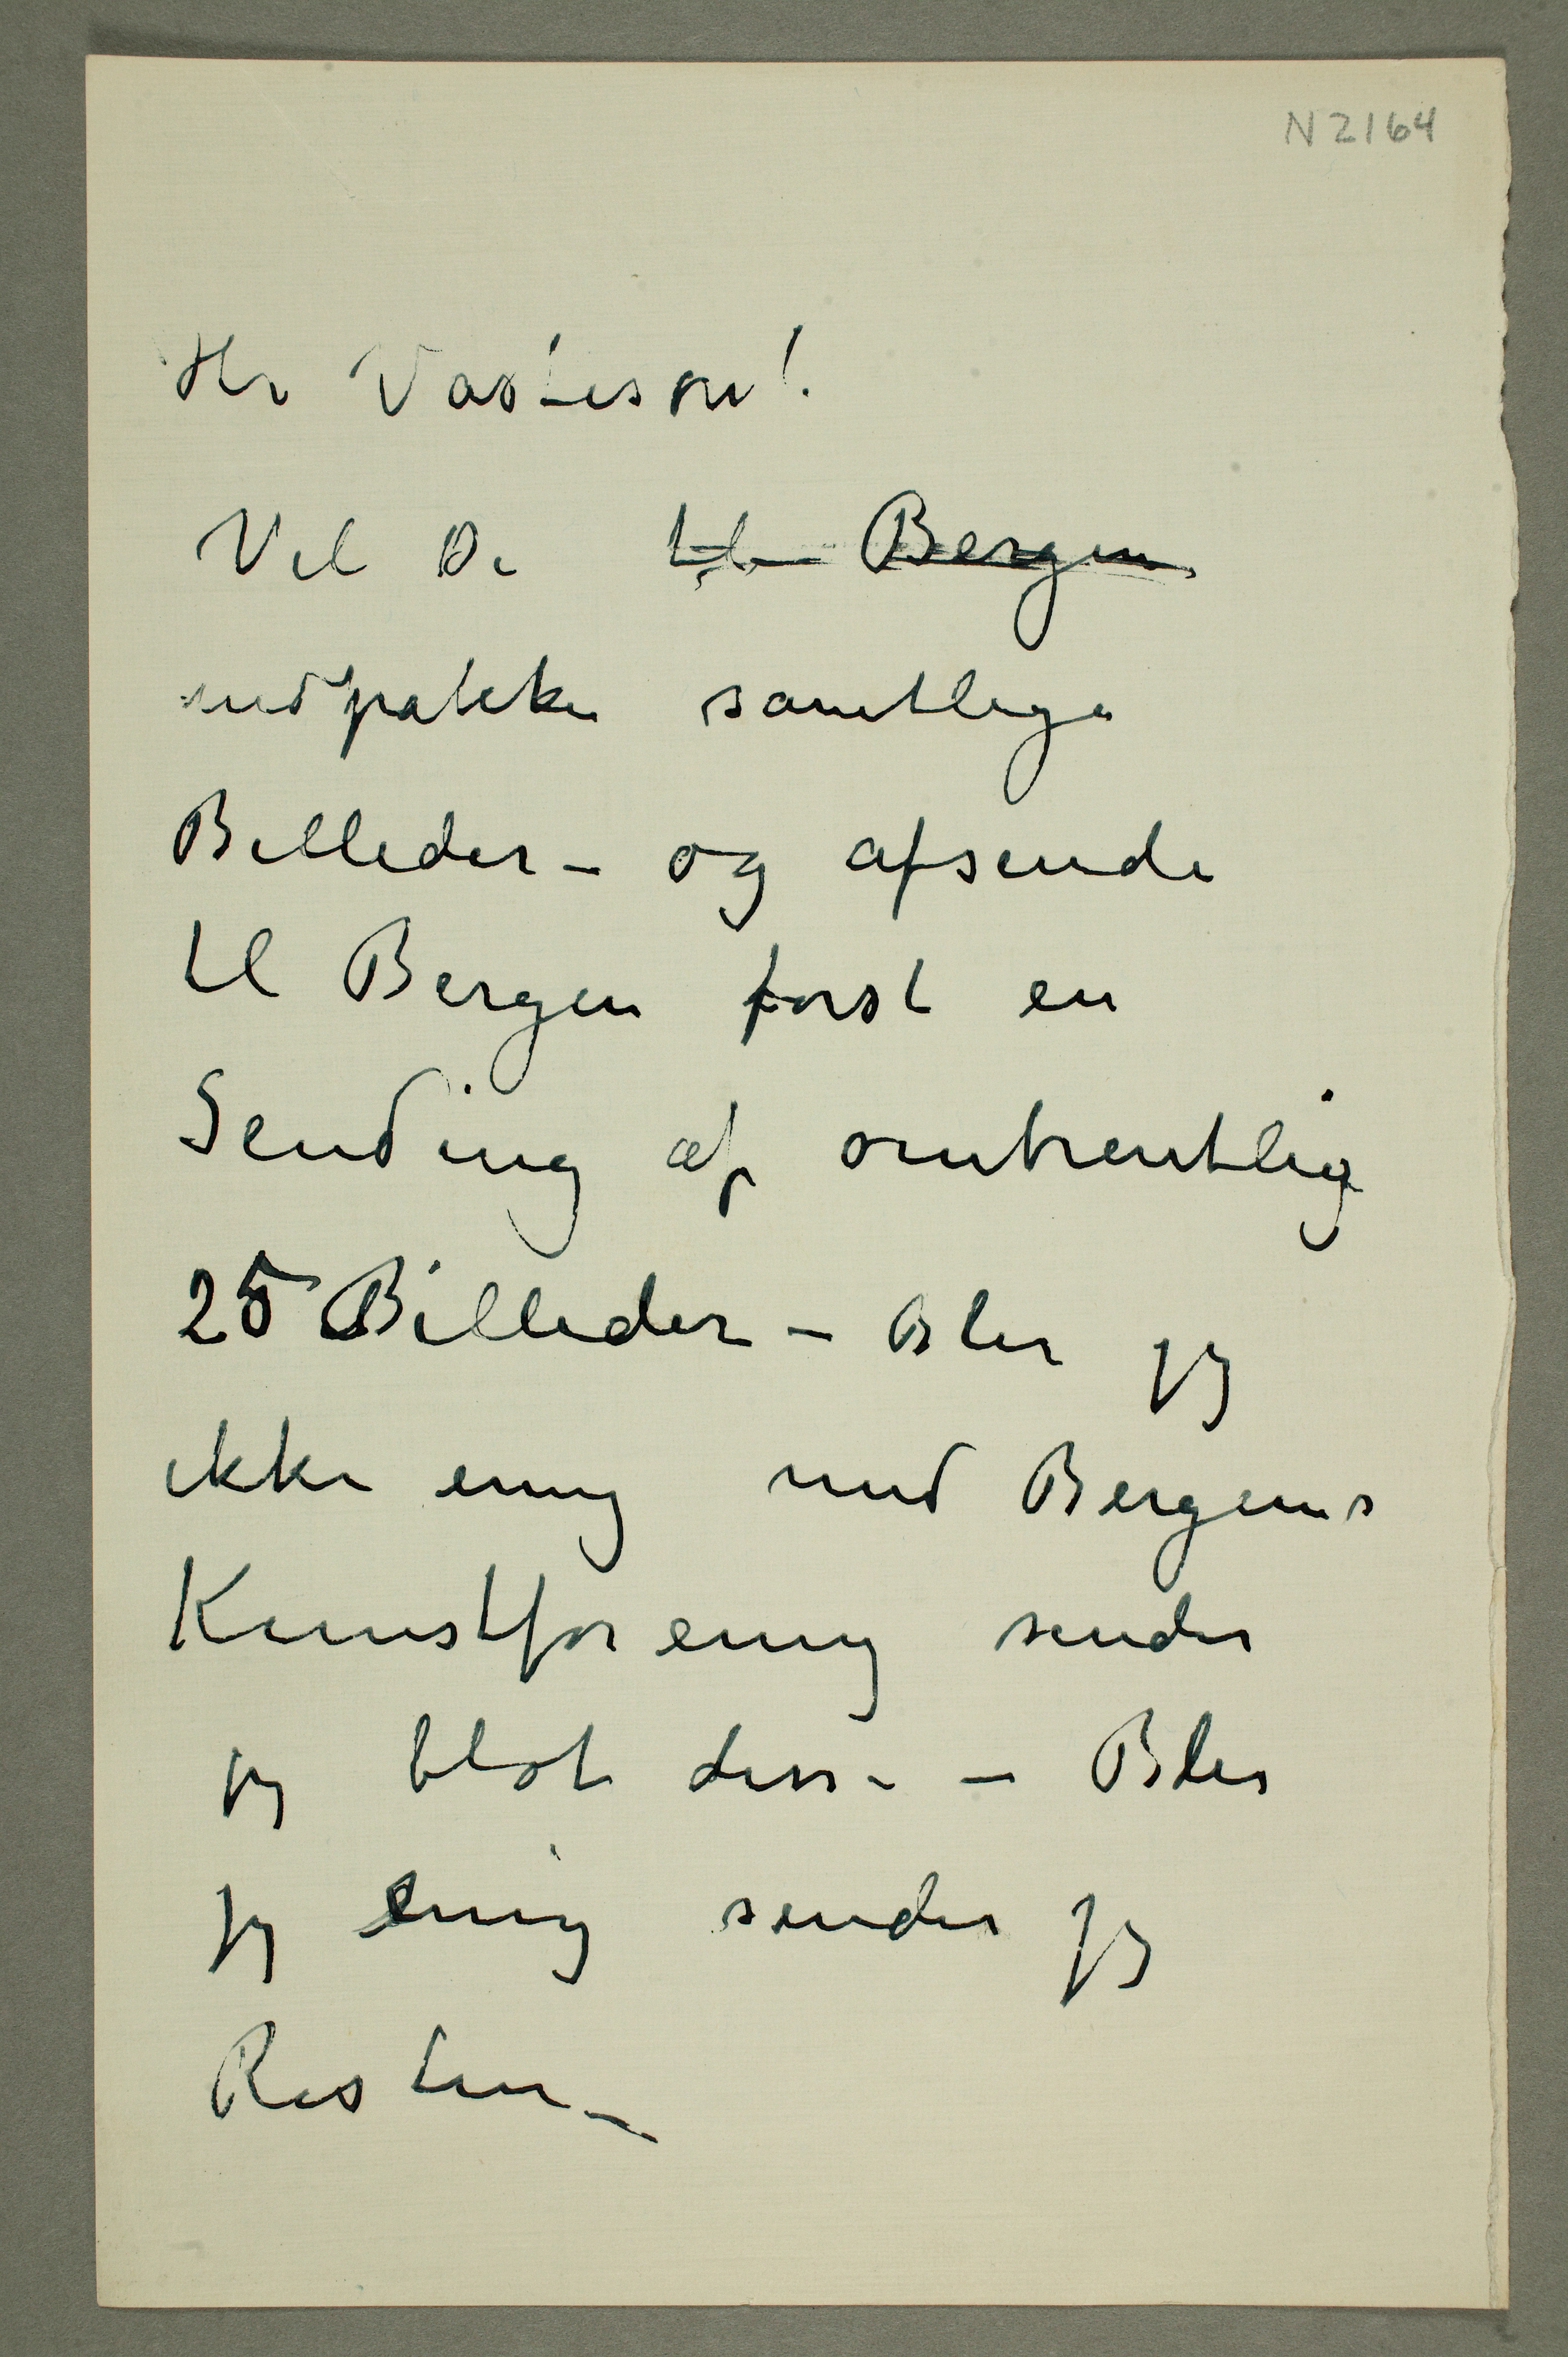 N 2164
Hr
Vil De til Bergen
nedpakke samtlige
Billeder – og afsende
til Bergen først en
Sending af omtrentlig
25 Billeder – Blir jeg
ikke enig med Bergens
Kunstforening sender
jeg blot disse – Blir
jeg enig sender jeg
Resten –